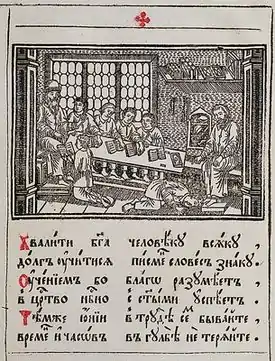 Хвалити бг҃а человѣку всѧку,
долгъ ᲂучитисѧ писменъ словесъ знаку.
Оученїемъ бо благш разумѣетъ,
в црт҃во нб҃но с ст҃ыми ᲂуспѣетъ.
Тѣмже їѡнїи в трудѣ сѐ бывайте,
времѐ и часѡвъ в гульбѣ не терѧйте.